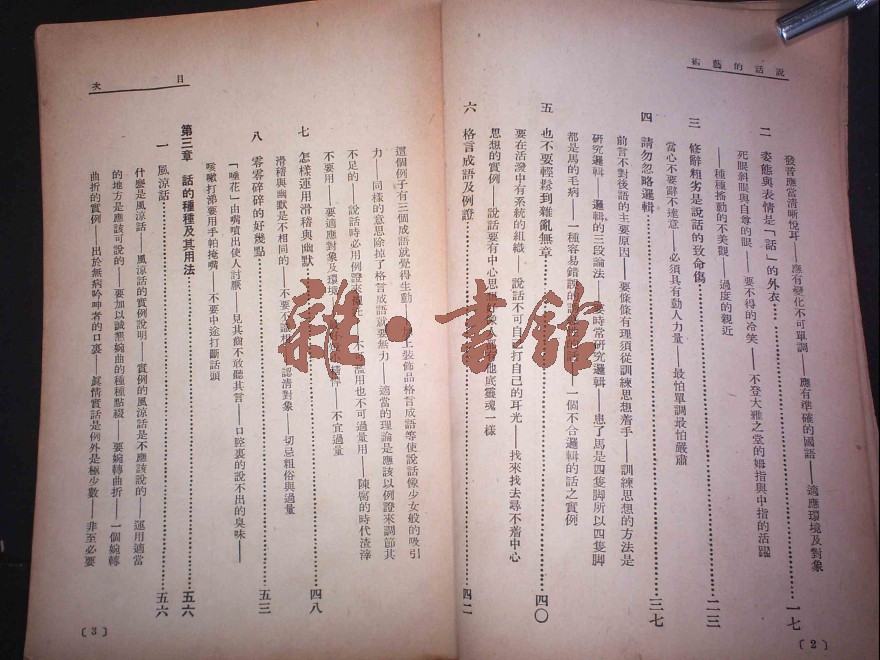 說話的藝術
發音應當清晰悅耳——應有變化不可單調——應有準確的國語——適應環境及對象
二 姿態與表情是「話」的外衣……一七
死眼斜眼與自尊的眼——要不得的冷笑——不登大雅之堂的姆指與中指的活躍
——種種搖動的不美觀——過度的親近
三 修辭粗劣是說話的致命傷……二三
當心不要辭不達意——必須具有動人力量——最怕單調最怕嚴肅
四 請勿忽略邏輯……三七
前言不對後語的主要原因——要條條有理須從訓練思想着手——訓練思想的方法是
研究邏輯——邏輯的三段論法——要時常研究邏輯——患了馬是四隻脚所以四隻脚
都是馬的毛病——一種容易錯誤的——一個不合邏輯的話之實例
五 也不要輕鬆到雜亂無章……四〇
要在活潑中有系統的組織——說話不可自己打自己的耳光——找來找去尋不着中心
思想的實例——說話要有中心思想好像人底靈魂一樣
六 格言成語及例證……四二
〔2〕
目次
這個例子有三個成語就覺得生動——上裝飾品格言成語等使說話像少女般的吸引
力——同樣的意思除掉了格言成語就無力——適當的理論是應該以例證來調節其
不足的——說話時必用例證來用也不可過量用——陳腐的時代渣滓
不要用——要適應對象及環境——不宜過量
七 怎樣運用滑稽與幽默……四八
滑稽與幽默是不相同的——不要不識相——認清對象——切忌粗俗與過量
八 零零碎碎的好幾點……五三
「唾花」由嘴噴出使人討厭——見其齒不敢聽其言——口腔裏的說不出的臭味——
咳嗽打涕要用手帕掩嘴——不要中途打斷話頭
第三章 話的種種及其用法……五六
一 風涼話……五六
什麼是風涼話——風涼話的實例說明——實例的風涼話是不應該說的——運用適當
的地方是應該可說的——要加以誠懇婉曲的種種點綴——要婉轉曲折——一個婉轉
曲折的實例——出於無病吟呻者的口裏——真情實話是例外是極少數——非至必要
〔3〕
雜·書館